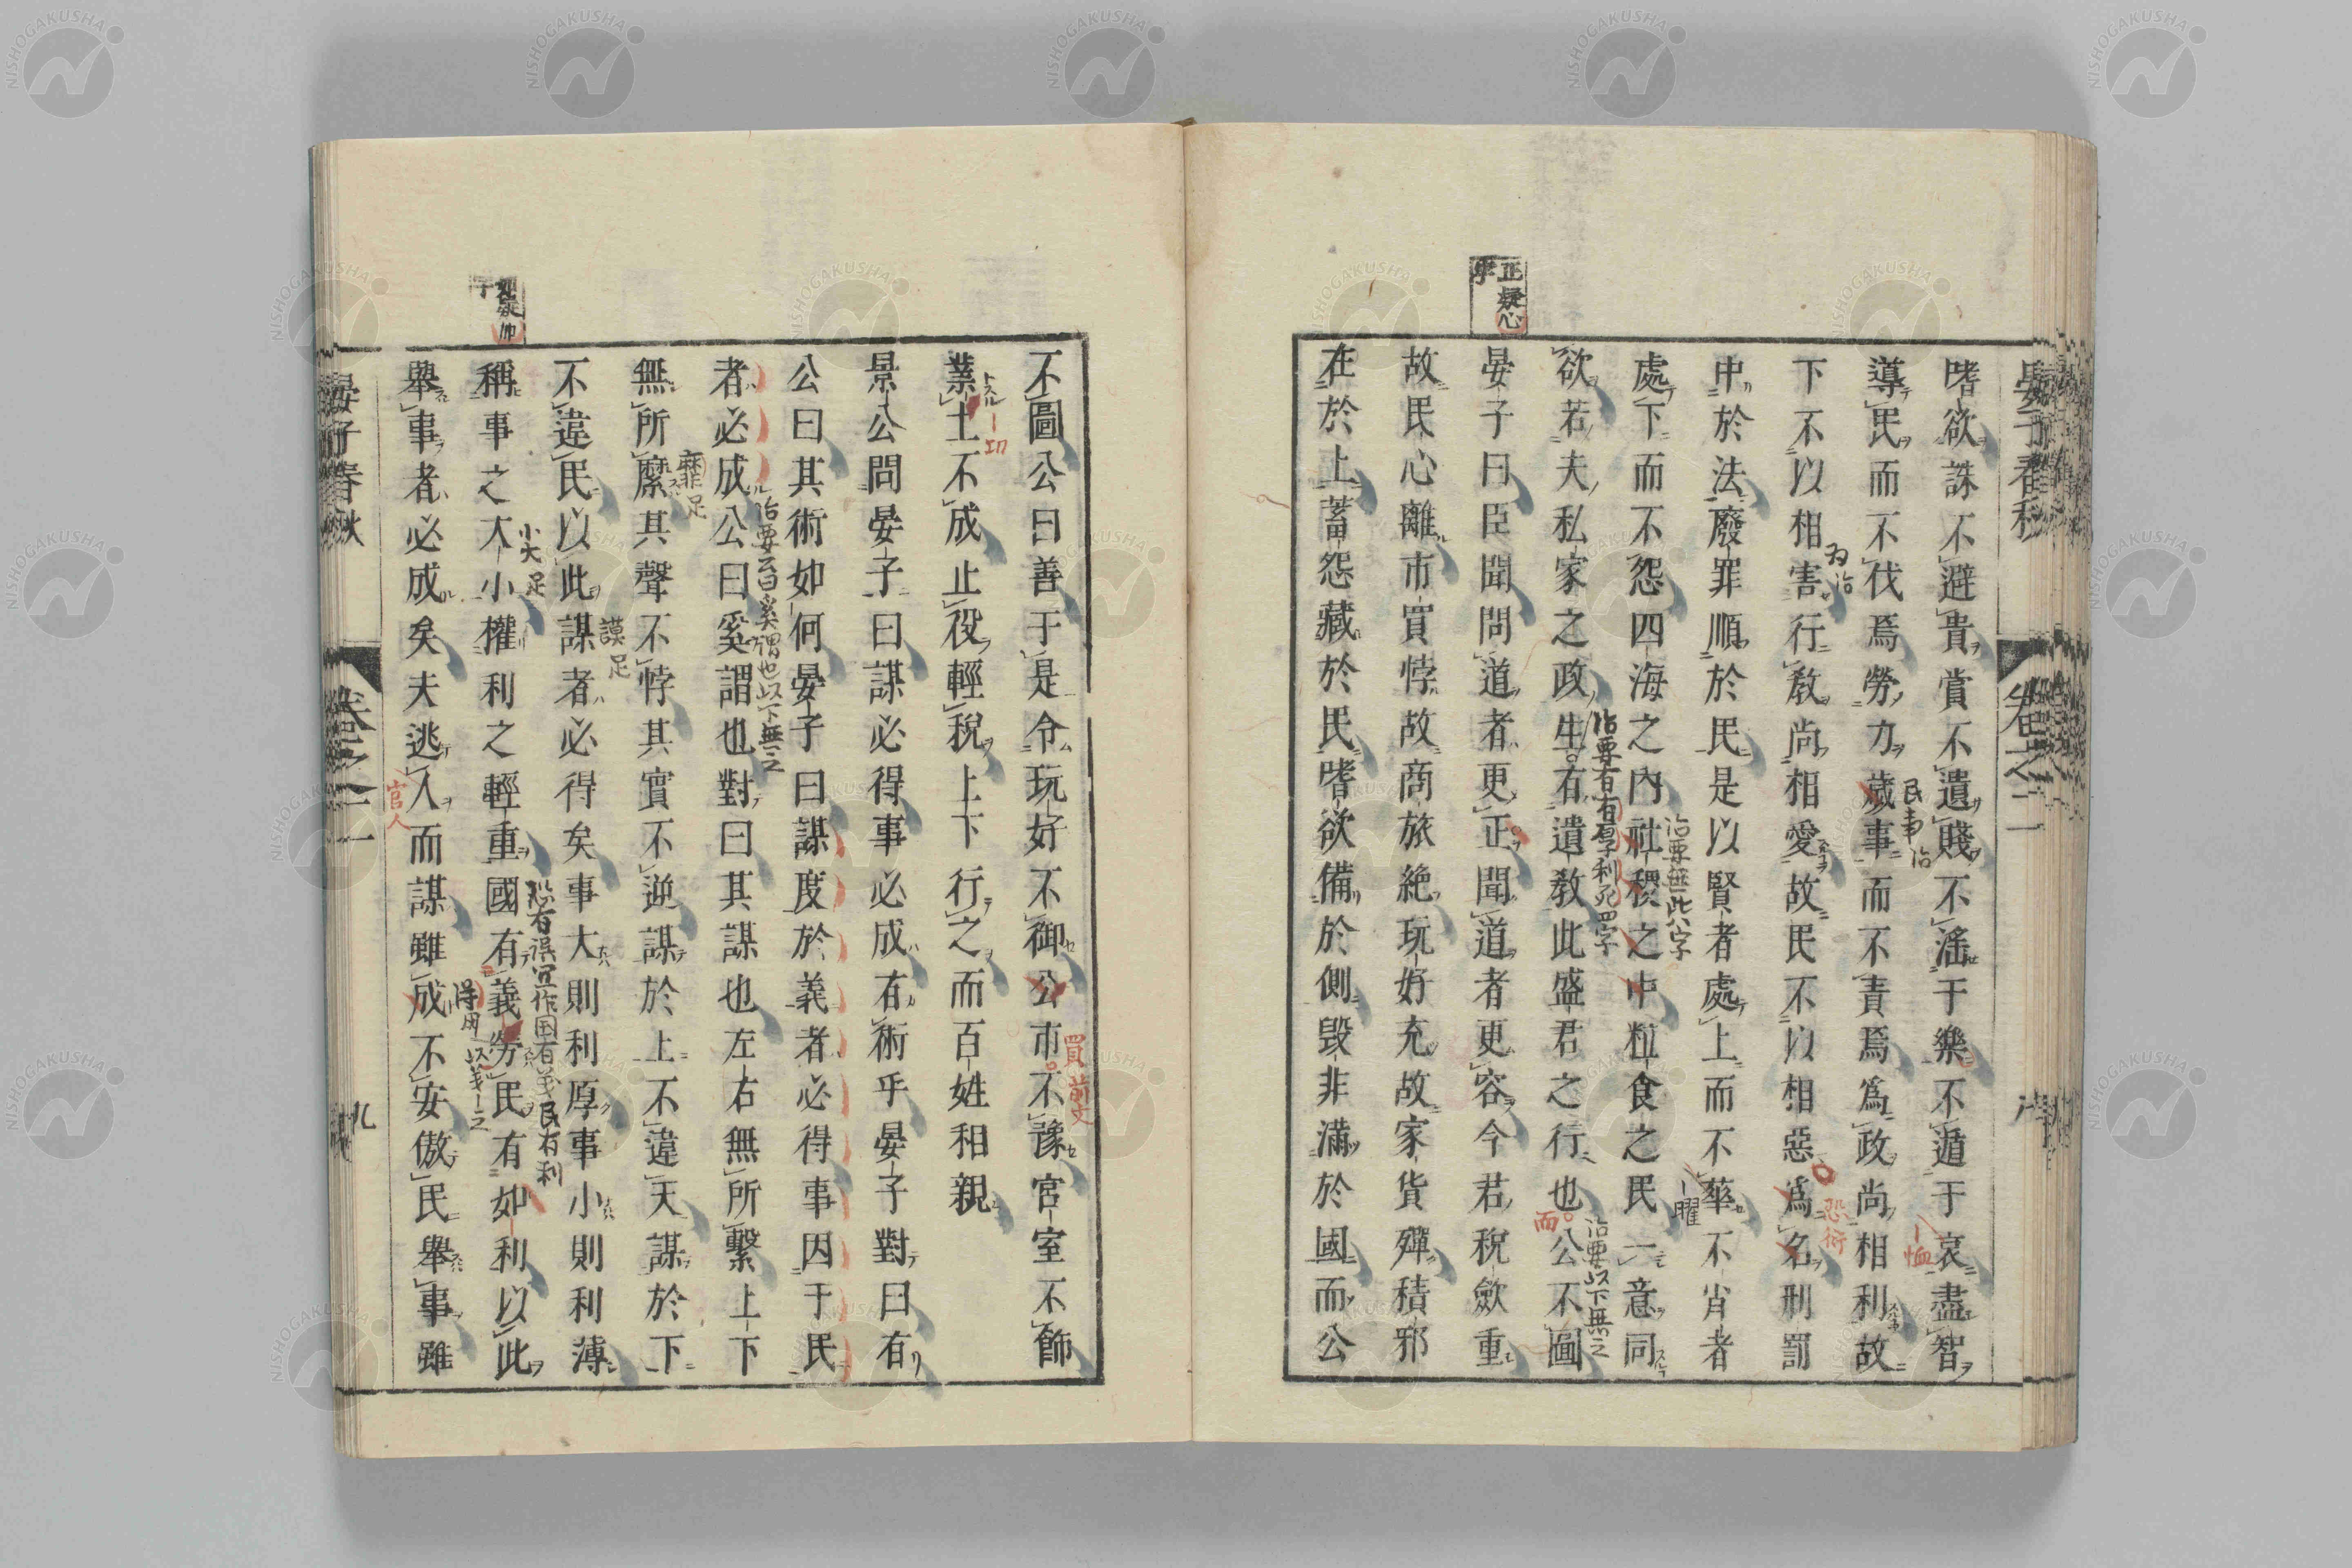 嗜欲誅不避貴賞不遺賤不滛于樂不遁于哀盡智
導民而不伐焉勞力歲事而不責焉爲政尚相利故
下不以相害行教尚相愛故民不以相惡爲名刑罰
中於法廢罪順於民是以賢者處上而不華不肖者
處下而不怨四海之內社稷之中粒食之民一意同
欲若夫私家之政生有遺教此盛君之行也公不圖
晏子曰臣聞問道者更正聞道者更容今君稅斂重
故民心離市買悖故商旅絶玩好充故家貨殫積邪
在於上蓄怨藏於民嗜欲備於側毀非滿於國而公
正疑心
字
民事治
为治
治要無此八字
治要有有厚利死四字
治要以下無之
曜
恤
恐衍
而
晏子春秋
卷之二
不圖公曰善于是令玩好不御公市不豫宮室不飾
業土不成止役輕稅上下行之而百姓相親
景公問晏子曰謀必得事必成有術乎晏子對曰有
公曰其術如何晏子曰謀度於義者必得事因于民
者必成公曰奚謂也對曰其謀也左右無所繫上下
無所縻其聲不悖其實不逆謀於上不違天謀於下
不違民以此謀者必得矣事大則利厚事小則利薄
稱事之大小權利之輕重國有義勞民有如利以此
舉事者必成矣夫逃人而謀雖成不安傲民舉事雖
買前文
功
治要云曰奚謂也以下無之
靡足
謨足
小大足
恐有誤宜作国有義民有利
官人
晏子春秋
卷之二
九